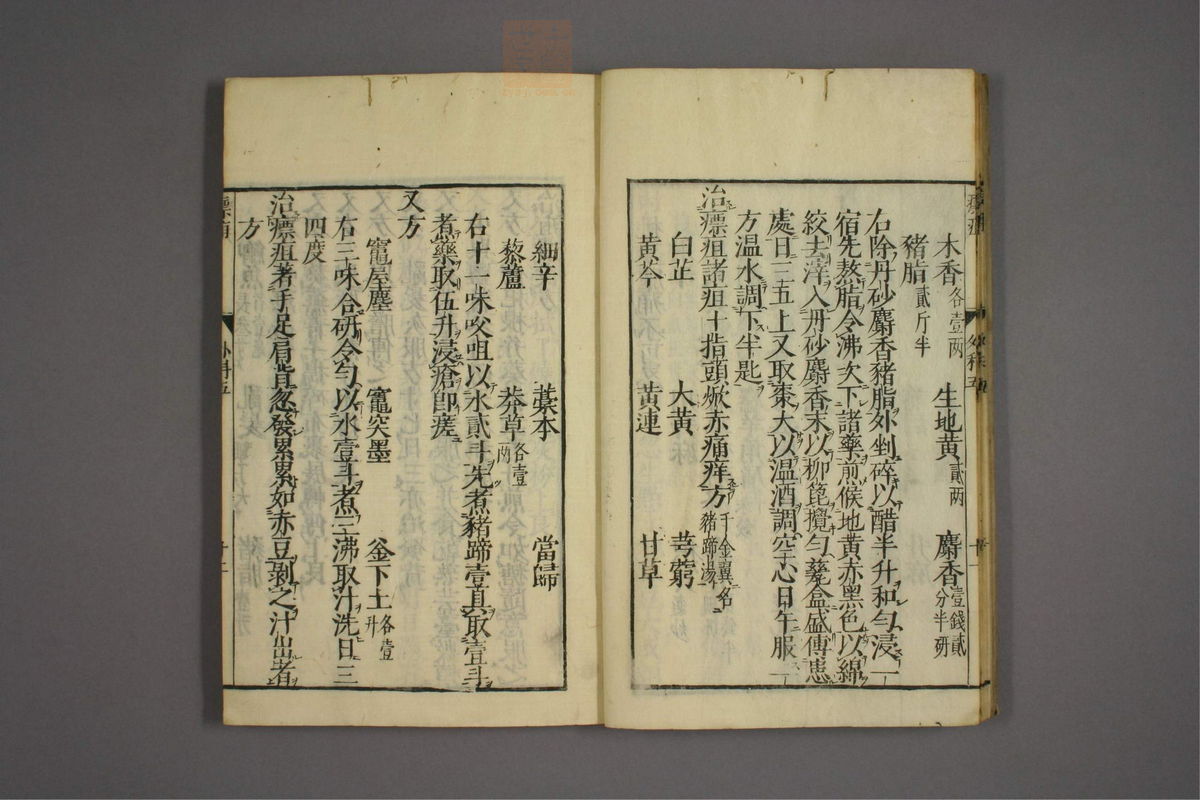 木香各壹两 生地黄貳两 麝香壹錢貳分半研
豬脂貳斤半
右除丹砂麝香豬脂外剉碎以醋半升和勻浸一
宿先熬脂令沸次下諸藥煎候地黄赤黑色以綿
絞去滓入丹砂麝香末以柳篦攪勻甆盒盛傅患
處日三五上又取棗大以溫酒調空心日午服一
方溫水調下半匙
治瘭疽諸疽十指頭焮赤痛痒方千金翼名豬蹄湯
白芷 大黄 芎藭
黄芩 黄連 甘草
細辛 藁本 當歸
藜蘆 莽草各壹两
右十一味㕮咀以水貳斗先煮豬蹄壹具取壹斗
煮藥取伍升浸瘡即瘥
又方
竈屋塵 竈突墨 釜下土各壹升
右三味合研令勻以水壹斗煮三沸取汁洗日三
四度
治瘭疽著手足肩背忽發累累如赤豆剥之汁出者
方
外科五